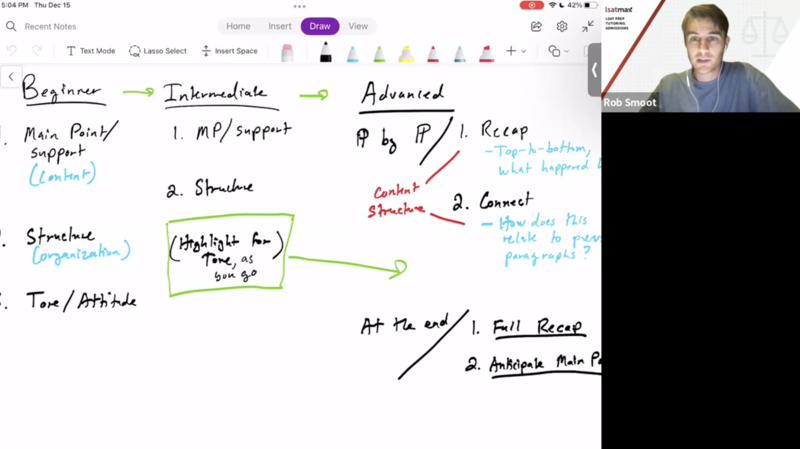 5:04 PM Thu Dec 15
42%
Recent Notes
Home Insert Draw View
Text Mode Lasso Select Insert Space
Beginner
Intermediate
Advanced
Main Point/
support
(Content)
Structure
(organization)
Tone/Attitude
1. MP/support
2. Structure
(Highlight for
Tone, as
you go)
by
1. Recap
- Top-to-bottom,
what happened
Content
Structure
2. Connect
- How does this
relate to
paragraphs?
At the end
1. Full Recap
2. Anticipate Main
lsatmax
LSAT PREP
TUTORING
ADMISSIONS
Rob Smoot